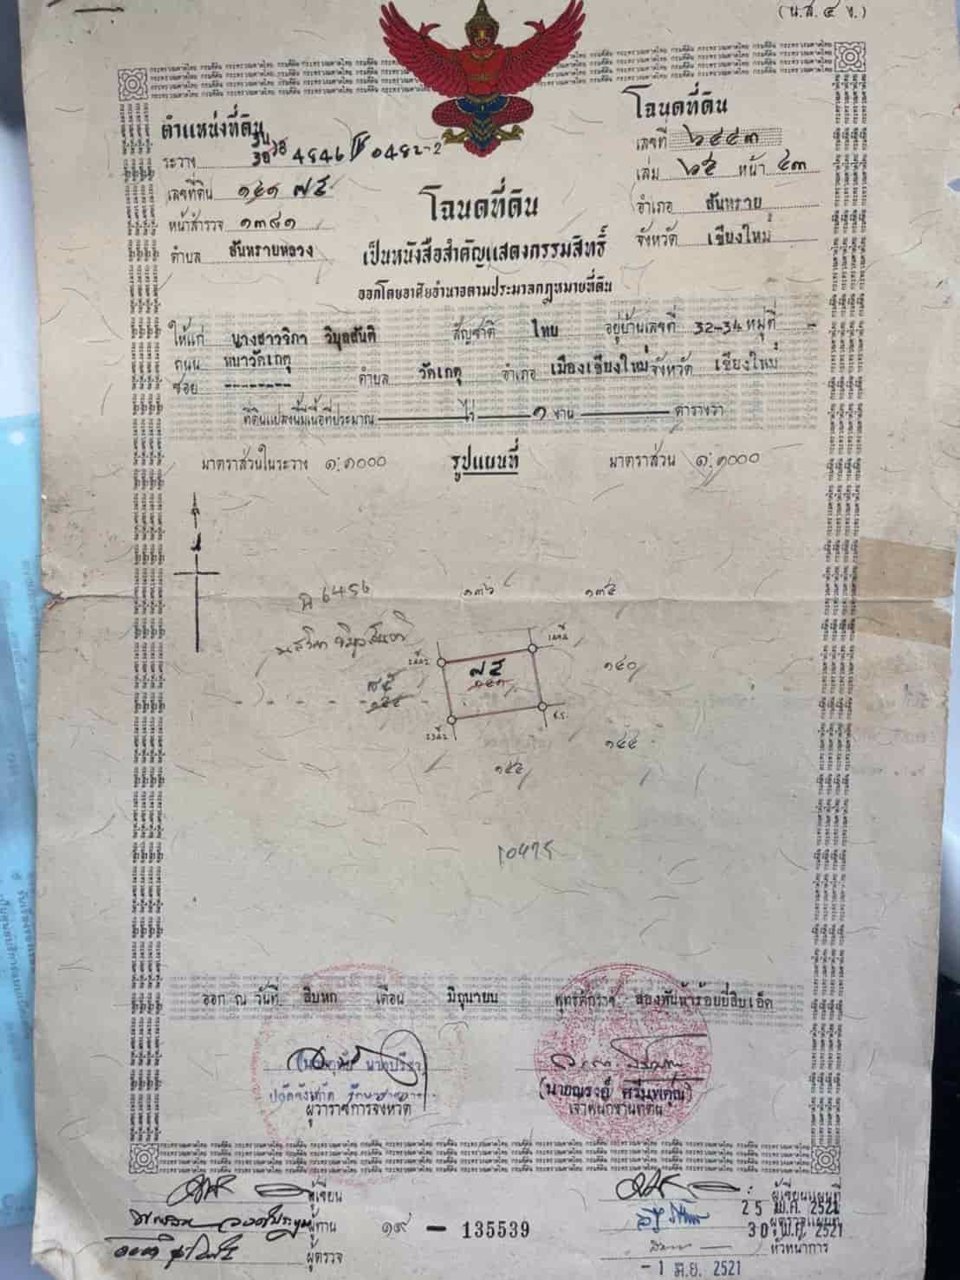 (น.ส. ๔ ง.)
ตำแหน่งที่ดิน
ระวาง 4846 0482-2
เลขที่ดิน ๑๔๑ ๗๕
หน้าสำรวจ ๑๓๘๑
ตำบล สันทรายหลวง
โฉนดที่ดิน
เลขที่ ๖๔๔๓
เล่ม ๖๕ หน้า ๔๓
อำเภอ สันทราย
จังหวัด เชียงใหม่
โฉนดที่ดิน
เป็นหนังสือสำคัญแสดงกรรมสิทธิ์
ออกโดยอาศัยอำนาจตามประมวลกฎหมายที่ดิน
ให้แก่ นางสาววิภา วิมุลสันติ สัญชาติ ไทย อยู่บ้านเลขที่ 32-34 หมู่ที่ -
ถนน หน้าวัดเกตุ
ซอย -------- ตำบล วัดเกตุ อำเภอ เมืองเชียงใหม่ จังหวัด เชียงใหม่
ที่ดินแปลงนี้มีเนื้อที่ประมาณ — ไร่ ๑ งาน — ตารางวา
มาตราส่วนในระวาง ๑:๑๐๐๐ รูปแผนที่ มาตราส่วน ๑:๑๐๐๐
๑๓๖ ๑๓๕
๗๕
๑๔๑
๑๔๐
๑๔๔
ออก ณ วันที่ สิบหก เดือน มิถุนายน พุทธศักราช สองพันห้าร้อยยี่สิบเอ็ด
ผู้ว่าราชการจังหวัด
(นายณรงย์ ศรีนพคุณ)
เจ้าพนักงานที่ดิน
ผู้เขียน
ผู้ทาน
ผู้ตรวจ
๑๙ – 135539
ผู้เขียนแผนที่
25 พ.ค. 2521
ผู้ตรวจแผนที่
30 พ.ค. 2521
หัวหน้าการ
- 1 มิ.ย. 2521